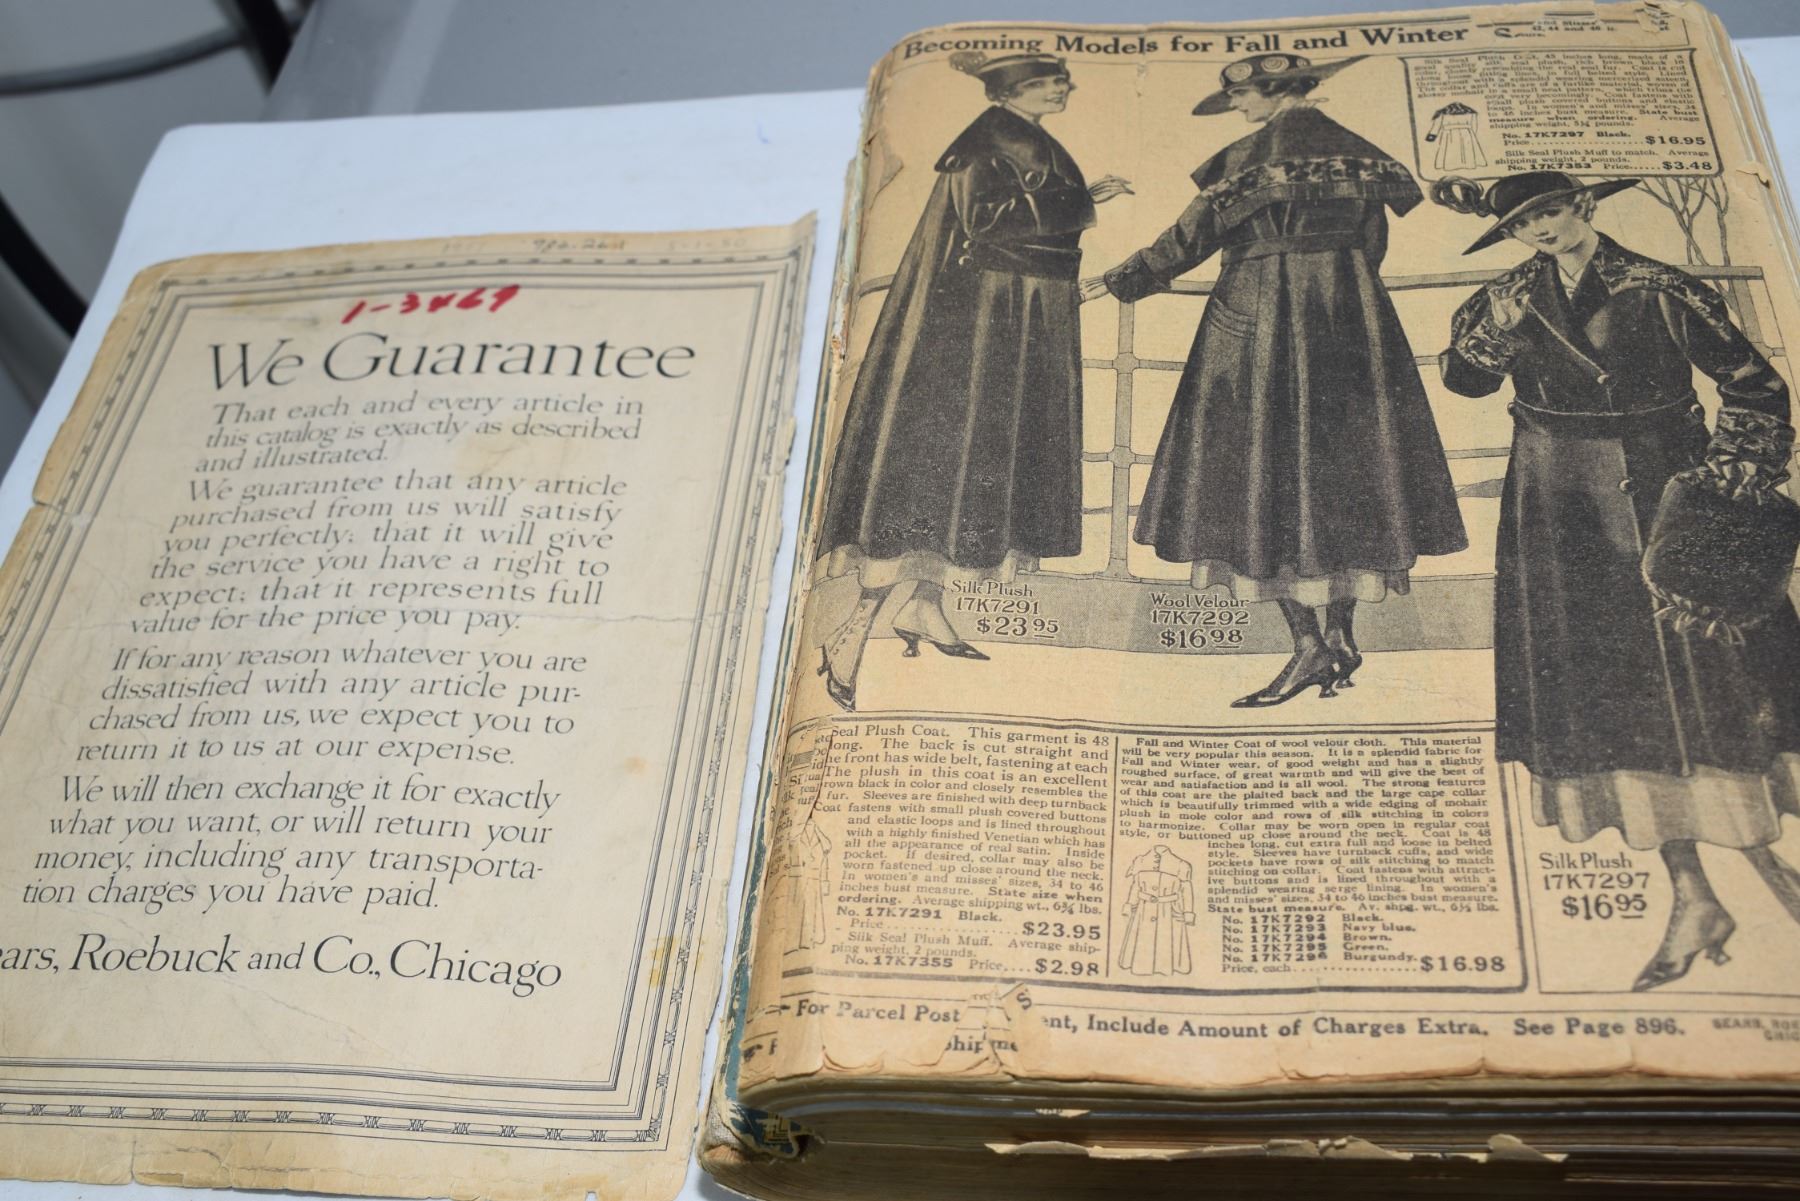 1-3469
We Guarantee
That each and every article in
this catalog is exactly as described
and illustrated.
We guarantee that any article
purchased from us will satisfy
you perfectly; that it will give
the service you have a right to
expect; that it represents full
value for the price you pay.
If for any reason whatever you are
dissatisfied with any article pur-
chased from us, we expect you to
return it to us at our expense.
We will then exchange it for exactly
what you want, or will return your
money, including any transporta-
tion charges you have paid.
ars, Roebuck and Co., Chicago
Becoming Models for Fall and Winter
Silk Seal Plush Coat, 45 inches long, made of a
good quality silk seal plush, rich brown black in
color, closely resembling the real seal fur. Coat is cut
along loose fitting lines, in full belted style. Lined
throughout with a splendid wearing mercerized sateen.
The collar and cuffs are of a furlike material, woven of
glossy mohair in a small neat pattern, which trims the
coat very becomingly. Coat fastens with
small plush covered buttons and elastic
loops. In women's and misses' sizes, 34
to 46 inches bust measure. State bust
measure when ordering. Average
shipping weight, 5¼ pounds.
No. 17K7297 Black.
Price $16.95
Silk Seal Plush Muff to match. Average
shipping weight, 2 pounds.
No. 17K7353 Price $3.48
Silk Plush
17K7291
$23 95
Wool Velour
17K7292
$16 98
Silk Plush
17K7297
$16 95
Seal Plush Coat. This garment is 48
long. The back is cut straight and
he front has wide belt, fastening at each
The plush in this coat is an excellent
rown black in color and closely resembles the
fur. Sleeves are finished with deep turnback
Coat fastens with small plush covered buttons
and elastic loops and is lined throughout
with a highly finished Venetian which has
all the appearance of real satin. Inside
pocket. If desired, collar may also be
worn fastened up close around the neck.
In women's and misses' sizes, 34 to 46
inches bust measure. State size when
ordering. Average shipping wt., 6¾ lbs.
No. 17K7291 Black.
Price $23.95
Silk Seal Plush Muff. Average ship-
ping weight, 2 pounds.
No. 17K7355 Price.... $2.98
Fall and Winter Coat of wool velour cloth. This material
will be very popular this season. It is a splendid fabric for
Fall and Winter wear, of good weight and has a slightly
roughed surface, of great warmth and will give the best of
wear and satisfaction and is all wool. The strong features
of this coat are the plaited back and the large cape collar
which is beautifully trimmed with a wide edging of mohair
plush in mole color and rows of silk stitching in colors
to harmonize. Collar may be worn open in regular coat
style, or buttoned up close around the neck. Coat is 48
inches long, cut extra full and loose in belted
style. Sleeves have turnback cuffs, and wide
pockets have rows of silk stitching to match
stitching on collar. Coat fastens with attract-
ive buttons and is lined throughout with a
splendid wearing serge lining. In women's
and misses' sizes, 34 to 46 inches bust measure.
State bust measure. Av. shpg. wt., 6½ lbs.
No. 17K7292 Black.
No. 17K7293 Navy blue.
No. 17K7294 Brown.
No. 17K7295 Green.
No. 17K7296 Burgundy.
Price, each $16.98
For Parcel Post ent, Include Amount of Charges Extra. See Page 896.